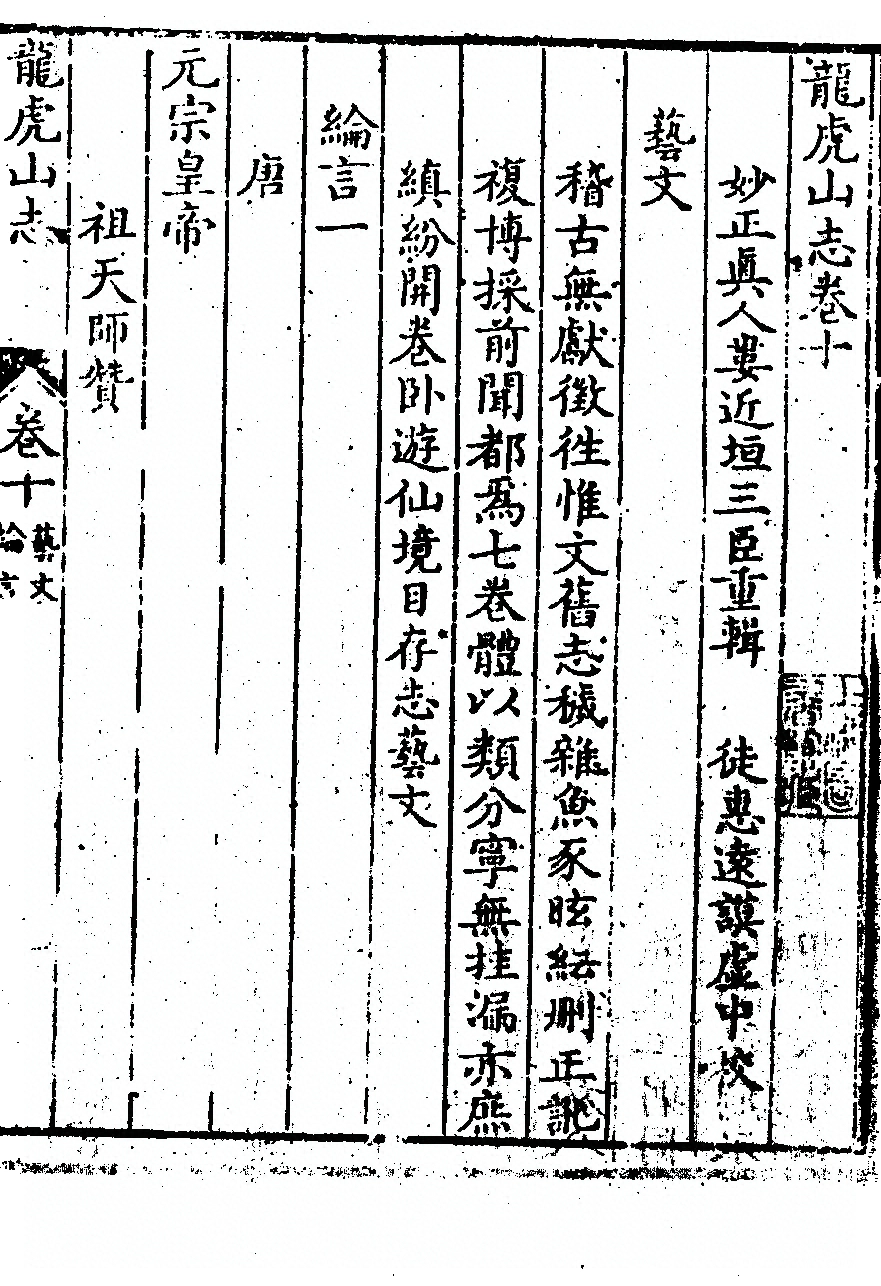 龍虎山志卷十
妙正眞人婁近垣三臣重輯　徒惠遠謨虛中校
藝文
稽古無獻徵徃惟文舊志穢雜魚豕眩結刪正訛
複博採前聞都爲七卷體以類分寧無挂漏亦庶
縝紛開卷卧遊仙境目存志藝文
綸言一
唐
元宗皇帝
祖天師贊
龍虎山志　卷十　藝文
綸言